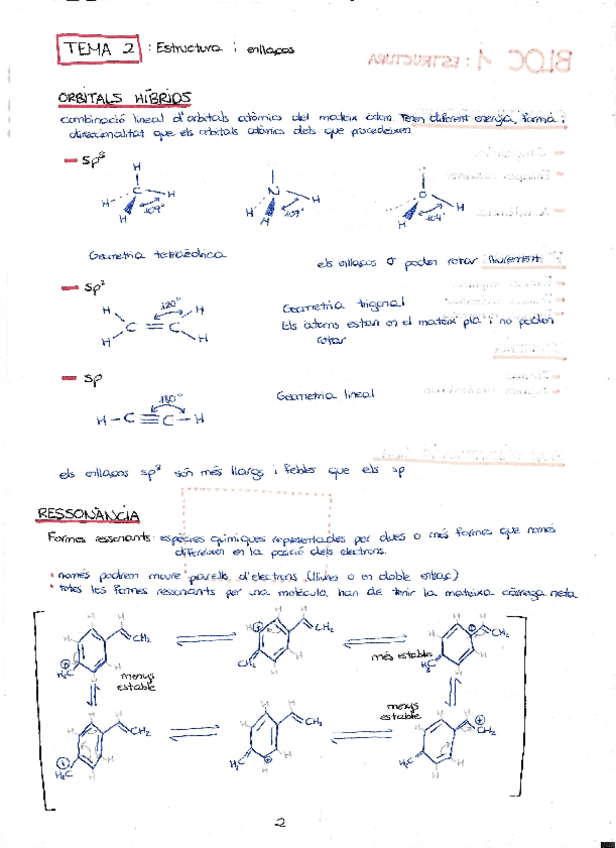 TEMA 2 : Estructura i enllaços
BLOC 1 : ESTRUCTURA
ORBITALS HÍBRIDS
combinació lineal d'orbitals atòmics del mateix àtom. Tenen diferent energia, forma i
direccionalitat que els orbitals atòmics dels que procedeixen
- sp³
H
C
H
H
H
109°
N
H
H
107°
O
H
H
104°
Geometria tetraèdrica
els enllaços σ poden rotar lliurement
- sp²
H
H
C = C
H
H
120°
Geometria trigonal
Els àtoms estan en el mateix pla i no poden
rotar
- sp
180°
H - C ≡ C - H
Geometria lineal
els enllaços sp³ són més llargs i febles que els sp
RESSONÀNCIA
Formes ressonants: espècies químiques representades per dues o més formes que només
difereixen en la posició dels electrons.
• només podrem moure parells d'electrons (lliures o en doble enllaç)
• totes les formes ressonants per una molècula han de tenir la mateixa càrrega neta
CH₂
H₂C
menys
estable
CH₂
CH₂
CH₂
més estable
H₂C
CH₂
H₂C
CH₂
H₂C
menys
estable
CH₂
H₂C
2